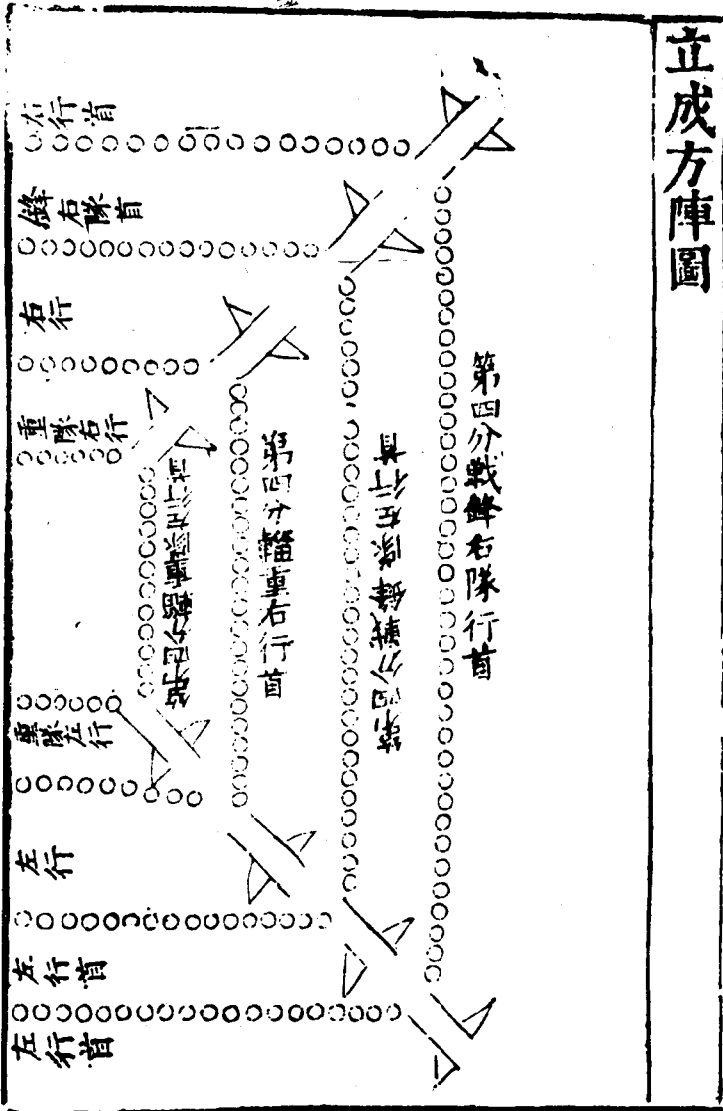 立成方陣圖
第四分戰鋒右隊行首
第四分戰鋒隊左行首
第四分輜重右行首
第四分輜重隊左行首
右行首
鋒右隊首
右行
重隊右行
重隊左行
左行
左行首
左行首